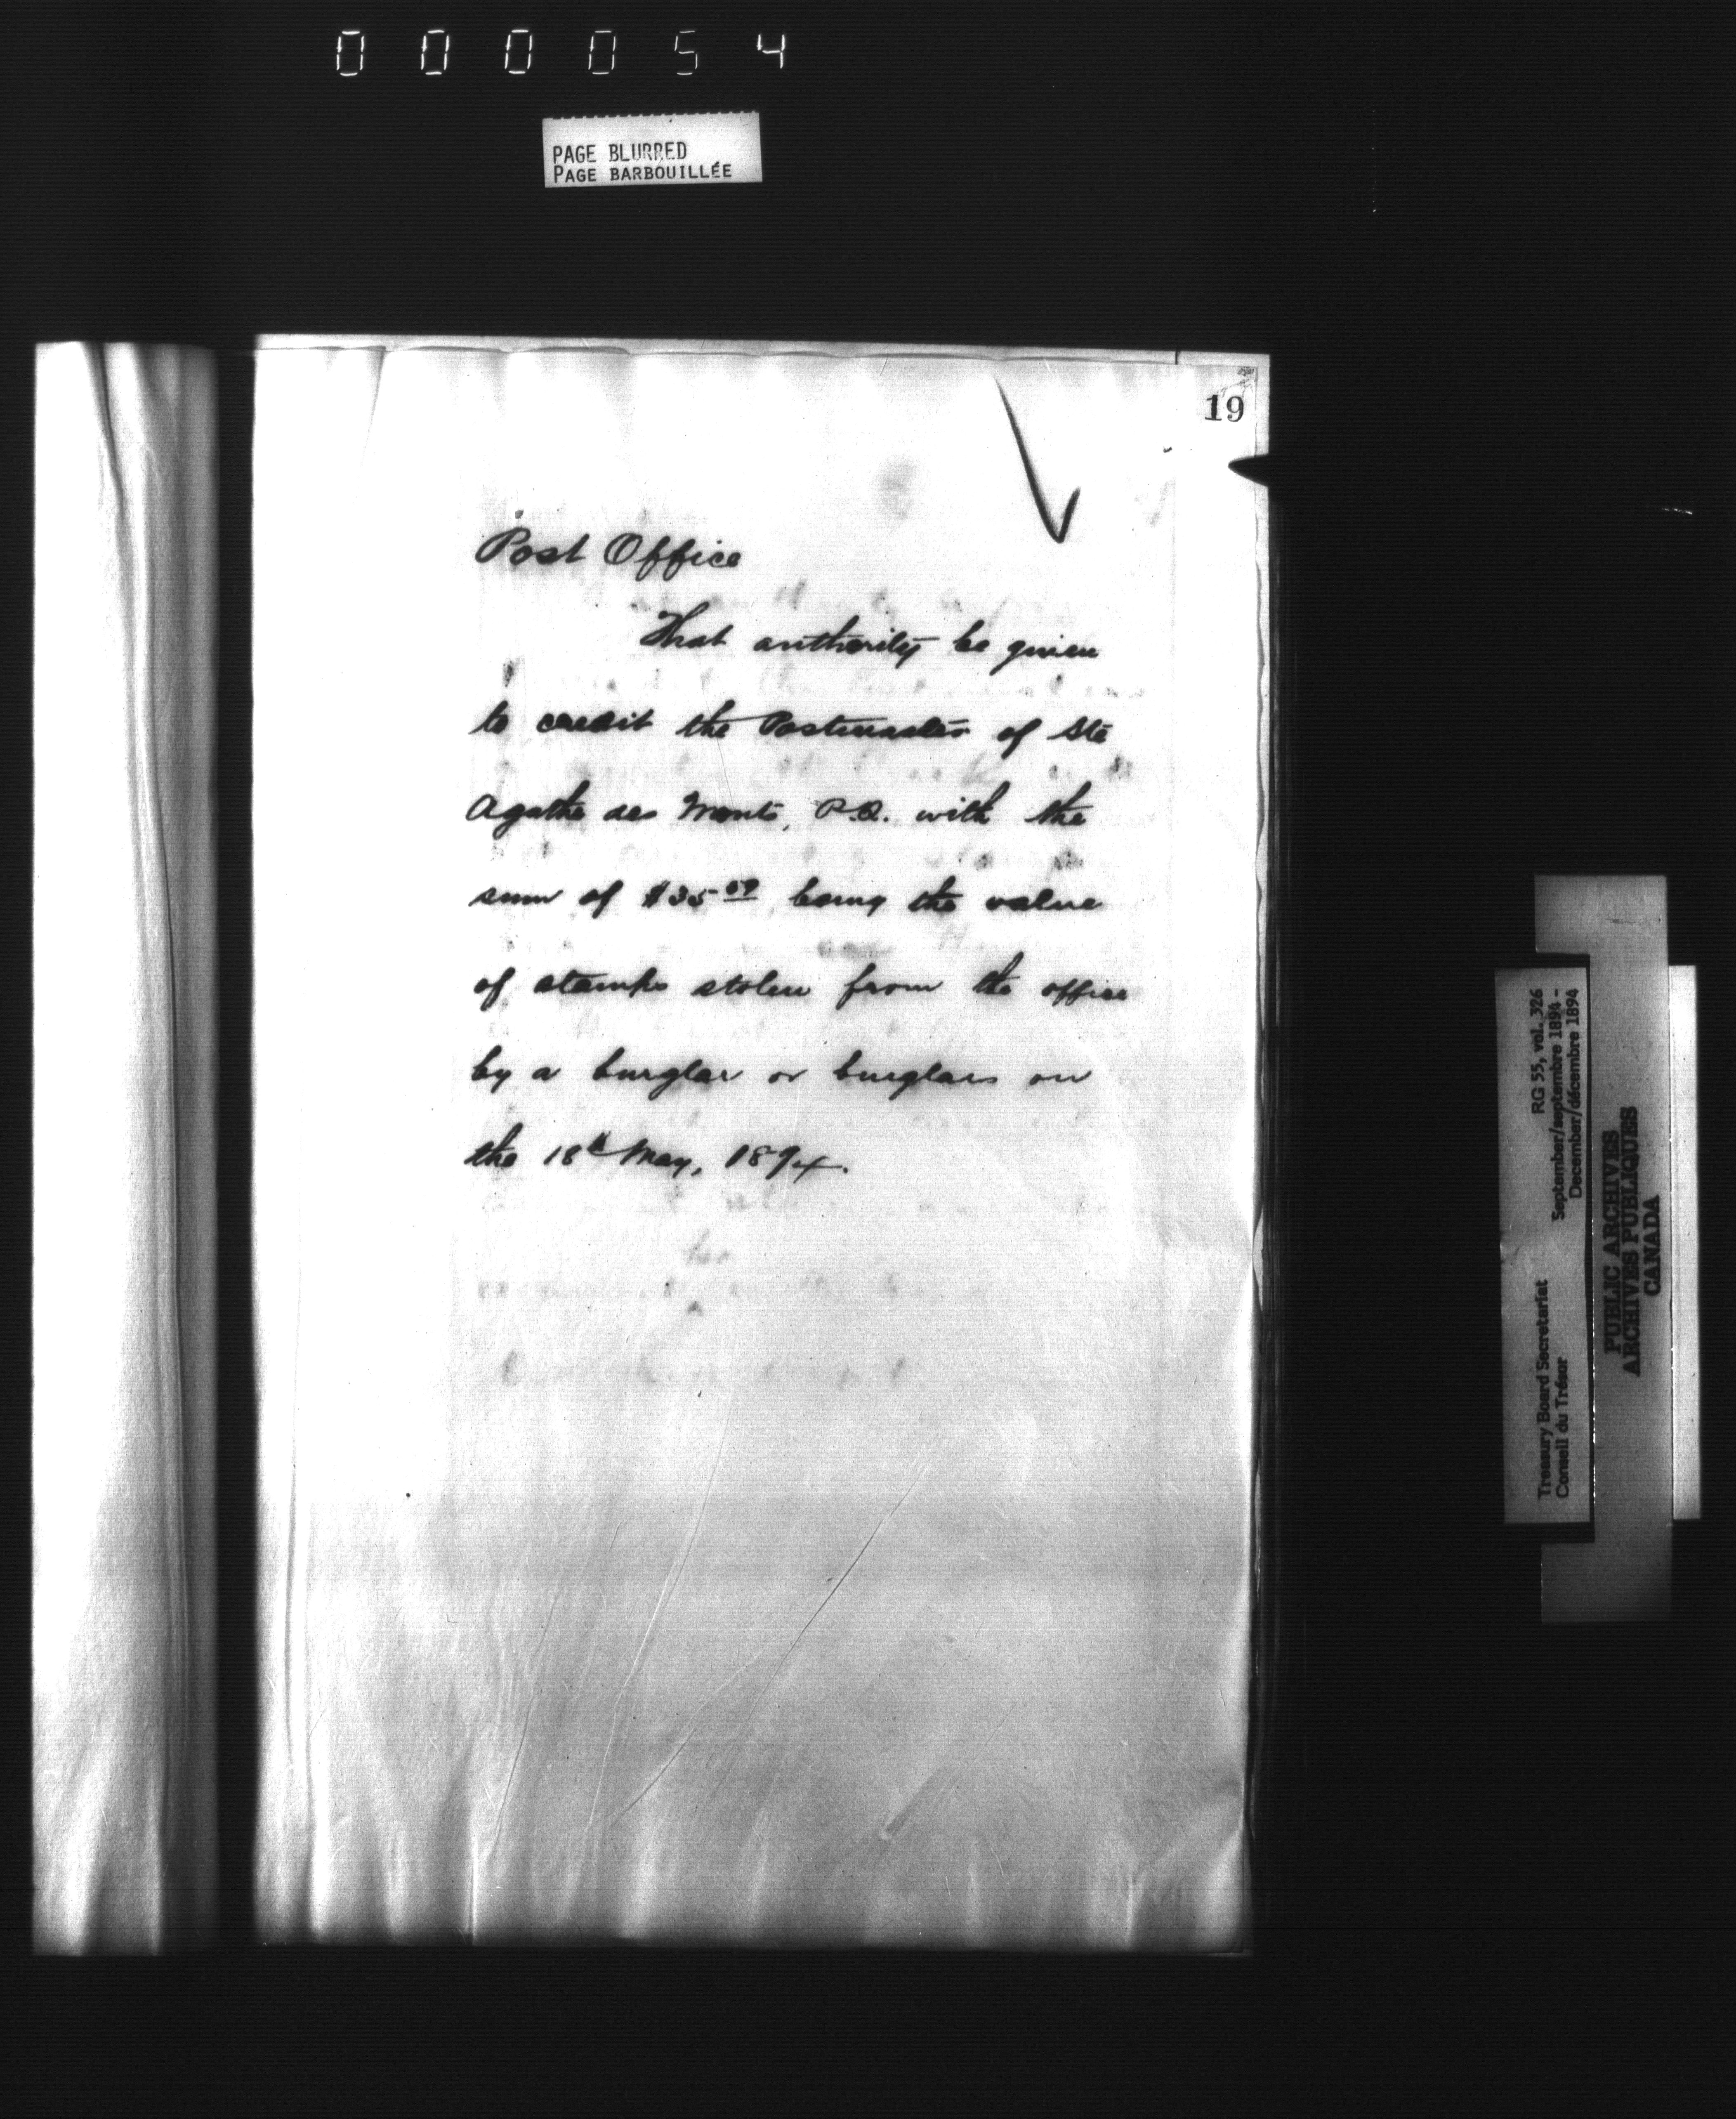 000054
PAGE BLURRED
PAGE BARBOUILLÉE
19
Post Office
That authority be given
to credit the Postmaster of Ste
Agathe des Monts, P.Q. with the
sum of $35 09 being the value
of stamps stolen from the office
by a burglar or burglars on
the 18th May, 1894.
Treasury Board Secretariat RG 55, vol. 326
Conseil du Trésor September/septembre 1894 -
December/décembre 1894
PUBLIC ARCHIVES
ARCHIVES PUBLIQUES
CANADA